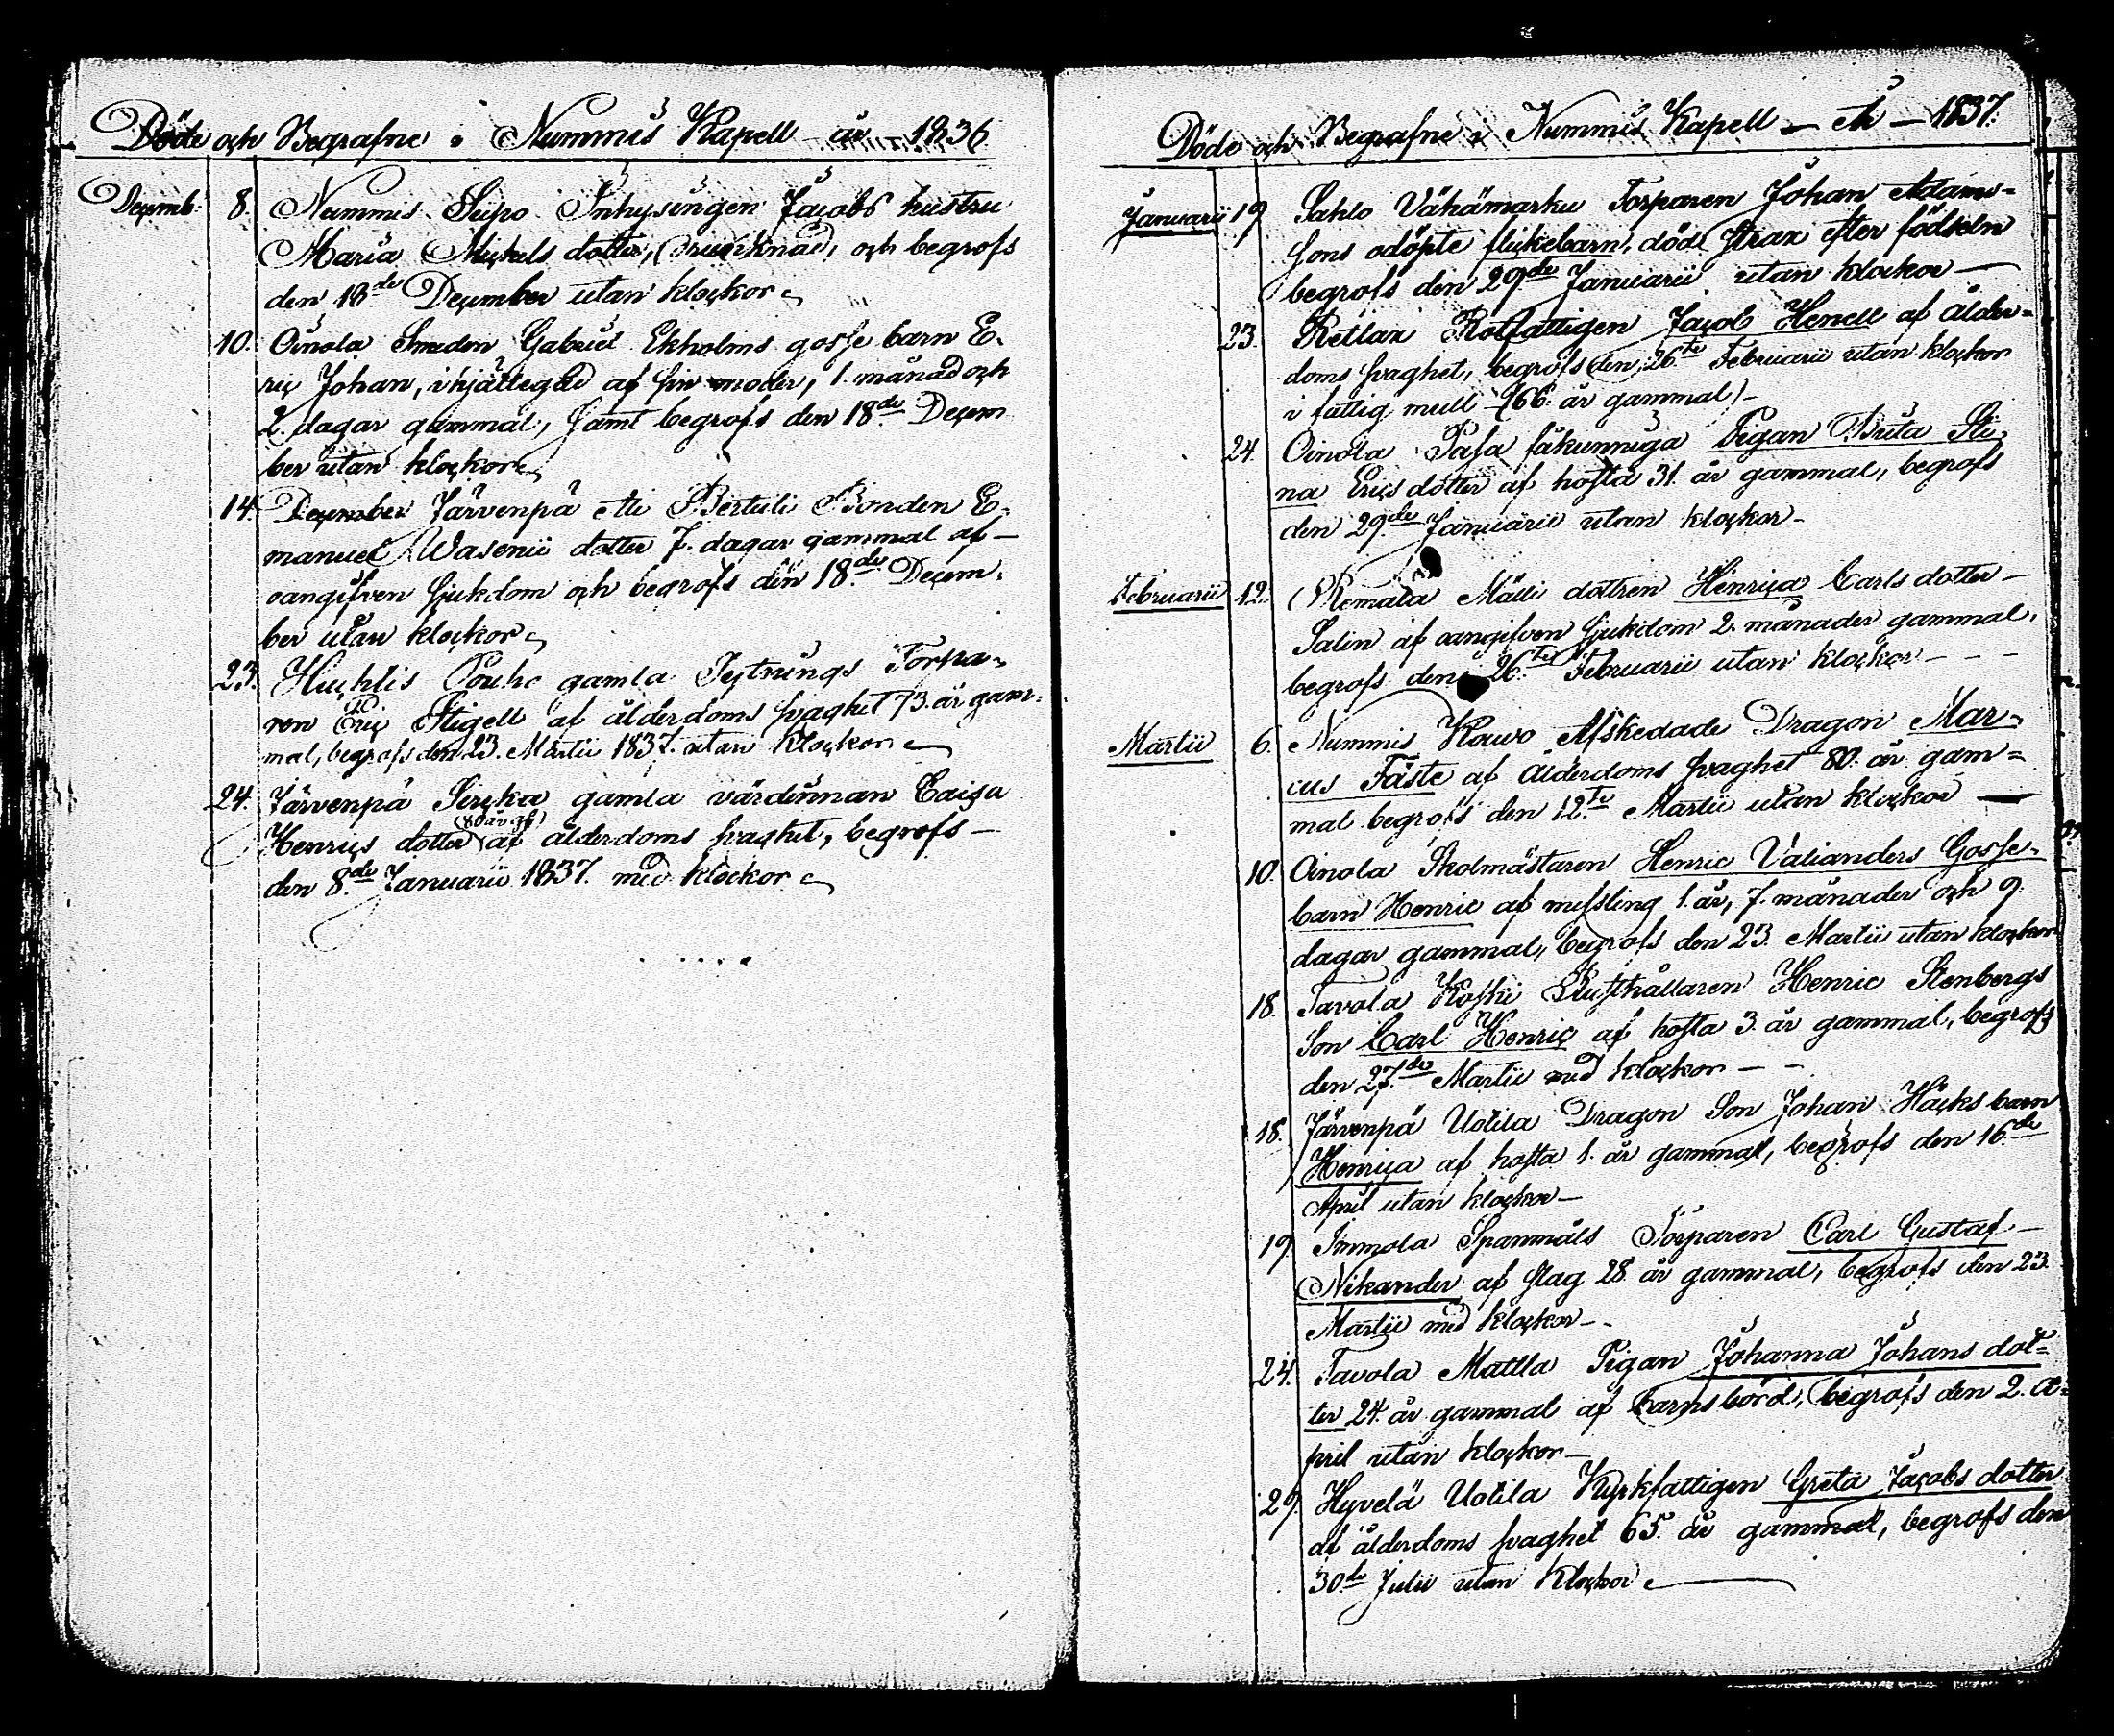 Döde och Begrafne i Nummis Kapell år 1836
Decemb: 8. Nummis Seipo Inhysingen Jacobs hustru
Maria Mickels dotter, och begrofs
den 18de December utan klockor
10. Oinola Smeden Gabriel Ekholms gosse barn E-
ric Johan, ihjällegad af sin moder, 1. månad och
2. dagar gammal, samt begrofs den 18de Decem
ber utan klockor
14. December Järvenpä Ali Bertuli Bonden E-
manuel Wasenii dotter 7. dagar gammal af
oangifven sjukdom och begrofs den 18de Decem-
ber utan klockor
23. Huhtis Pouho gamla Torpa-
ren Eric Stigell af ålderdoms svaghet 73. år gam-
mal, begrofs den 23. Martii 1837. utan klockor
24. Järvenpä gamla värdinnan Caisa
(80 år gl)
Henrics dotter af ålderdoms svaghet, begrofs
den 8de Januarii 1837. med klockor
Döde och Begrafne i Nummis Kapell År 1837.
Januarii 19 Sahlo Vähämarku Torparen Johan Adams-
sons odöpte flickebarn, död strax efter födseln
begrofs den 29de Januarii utan klockor
23. Retlax Rotfattigen Jacob Henell af ålder-
doms svaghet, begrofs den 26te Februarii utan klockor
i fattig mull (66 år gammal)
24. Oinola Pasa fåkunniga Pigan Brita Sti-
na Erics dotter af hosta 31. år gammal, begrofs
den 29de Januarii utan klockor
Februarii 12. Remala Mälli dottren Henrica Carls dotter
Salin af oangifven sjukdom 2. månader gammal,
begrofs den 26te Februarii utan klockor
Martii 6. Nummis Kouvo Afskedade Dragon Mar-
cus Fäste af ålderdoms svaghet 80. år gam-
mal begrofs den 12te Martii utan klockor
10. Oinola Skolmästaren Henric Valianders Gosse-
barn Henric af messling 1. år, 7. månader och 9.
dagar gammal, begrofs den 23. Martii utan klockor
18. Tavola Koski Rusthållaren Henric Stenbergs
Son Carl Henric af hosta 3. år gammal, begrofs
den 27de Martii med klockor
18. Järvenpä Uotila Dragon Son Johan Häcks barn
Henrica af hosta 1. år gammal, begrofs den 16de
April utan klockor
19 Immola Spannmåls Torparen Carl Gustaf
Nikander af slag 28. år gammal, begrofs den 23.
Martii med klockor
24. Tavola Mattla Pigan Johanna Johans dot-
ter 24. år gammal af barnsbörd, begrofs den 2. A-
pril utan klockor
29. Hyvelä Uotila Kyrkfattigen Greta Jacobs dotter
af ålderdoms svaghet 65. år gammal, begrofs den
30de Julii utan klockor